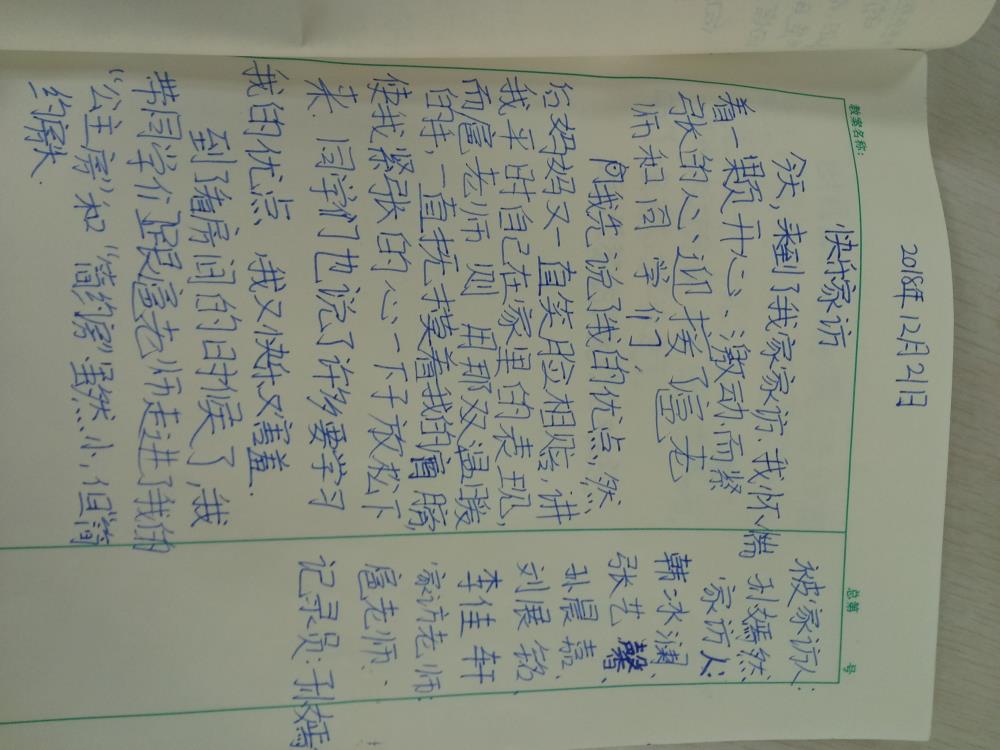 2018年12月21日
教案名称:
总第 号
快乐家访
今天,来到了我家家访.我怀惴
着一颗开心、激动而紧
张的心迎接了扈老
师和同学们
我先说了我的优点,然
后妈妈又一直笑脸相贴,讲
我平时自己在家里的表现,
而扈老师则用那双温暖
的手,一直抚摸着我的肩膀,
使我紧张的心一下子放松下
来.同学们也说了许多要学习
我的优点 我又快乐又害羞.
到了看房间的时候了,我
带同学们跟扈老师走进了我的
“公主房”和“简约房”虽然小,但简
约廓大.
被家访人:
孙嫣然
家访人:
韩冰澜
张艺馨、
孙晨嘉、
刘展铭、
李佳轩
家访老师:
扈老师.
记录员:孙嫣